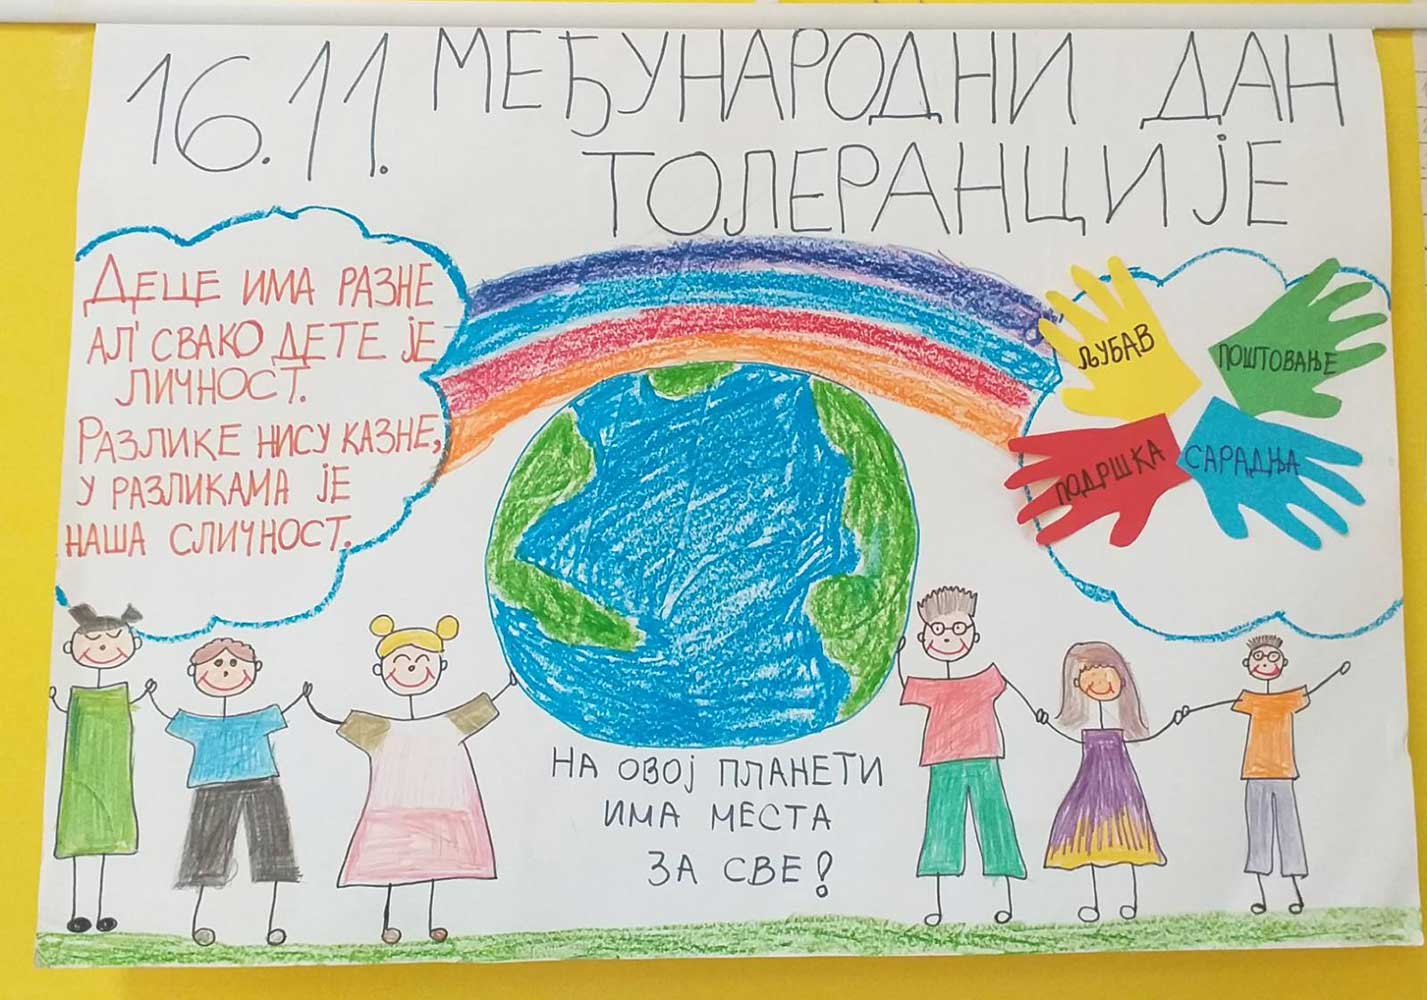 16.11. МЕЂУНАРОДНИ ДАН
ТОЛЕРАНЦИЈЕ
ДЕЦЕ ИМА РАЗНЕ
АЛ' СВАКО ДЕТЕ ЈЕ
ЛИЧНОСТ.
РАЗЛИКЕ НИСУ КАЗНЕ,
У РАЗЛИКАМА ЈЕ
НАША СЛИЧНОСТ.
ЉУБАВ
ПОШТОВАЊЕ
ПОДРШКА
САРАДЊА
НА ОВОЈ ПЛАНЕТИ
ИМА МЕСТА
ЗА СВЕ!